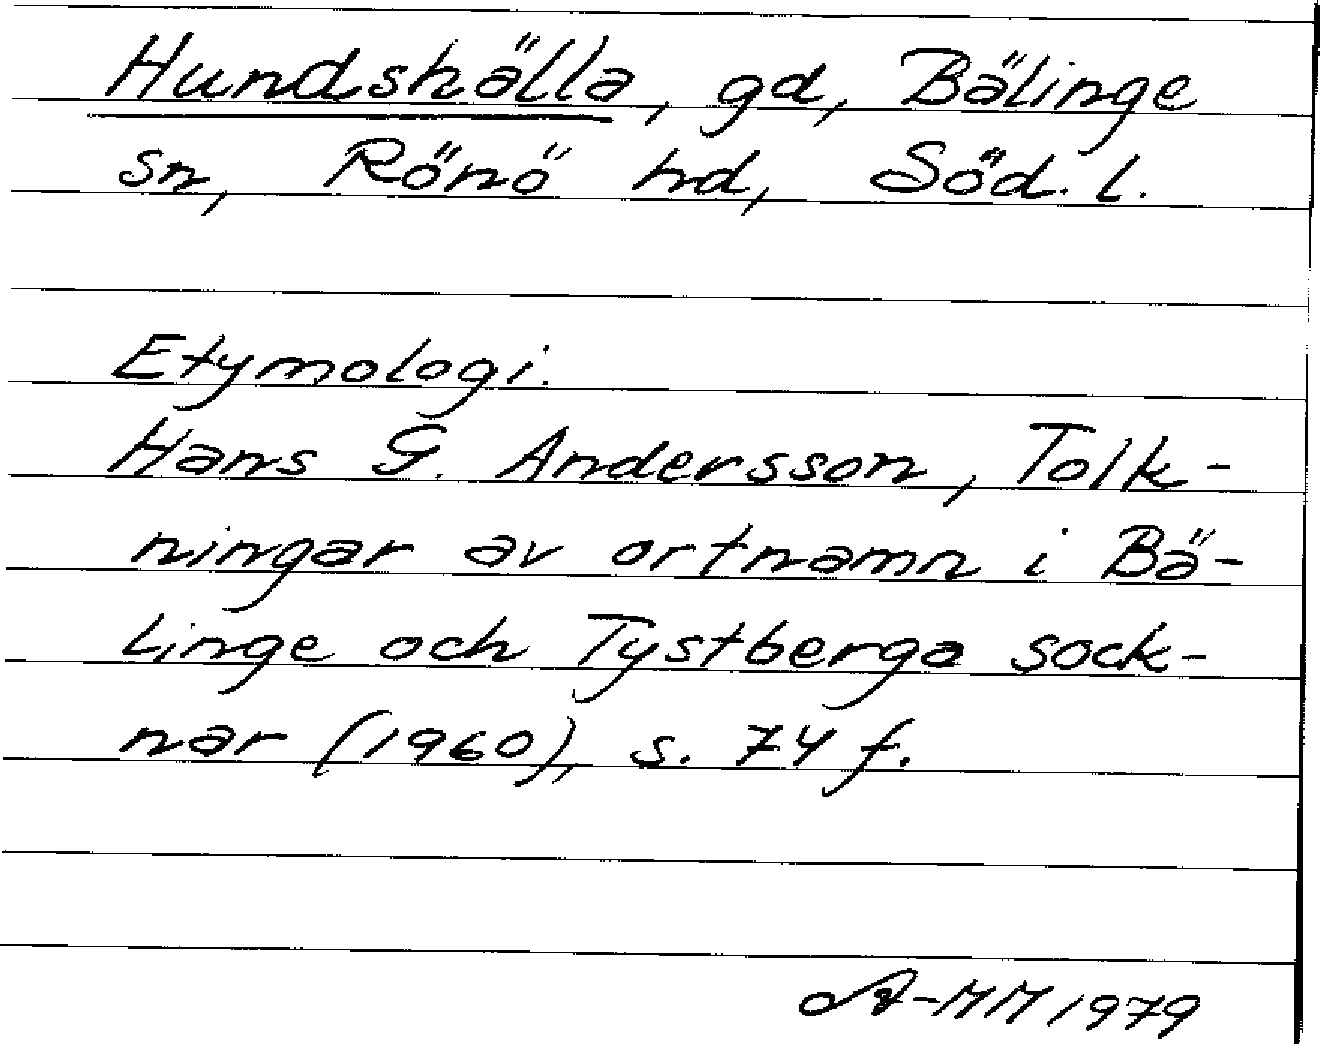 Hundshälla, gd, Bälinge
sn, Rönö hd, Söd. l.
Etymologi.
Hans G. Andersson, Tolk-
ningar av ortnamn i Bä-
linge och Tystberga sock-
nar (1960), s. 74 f.
A-MM 1979